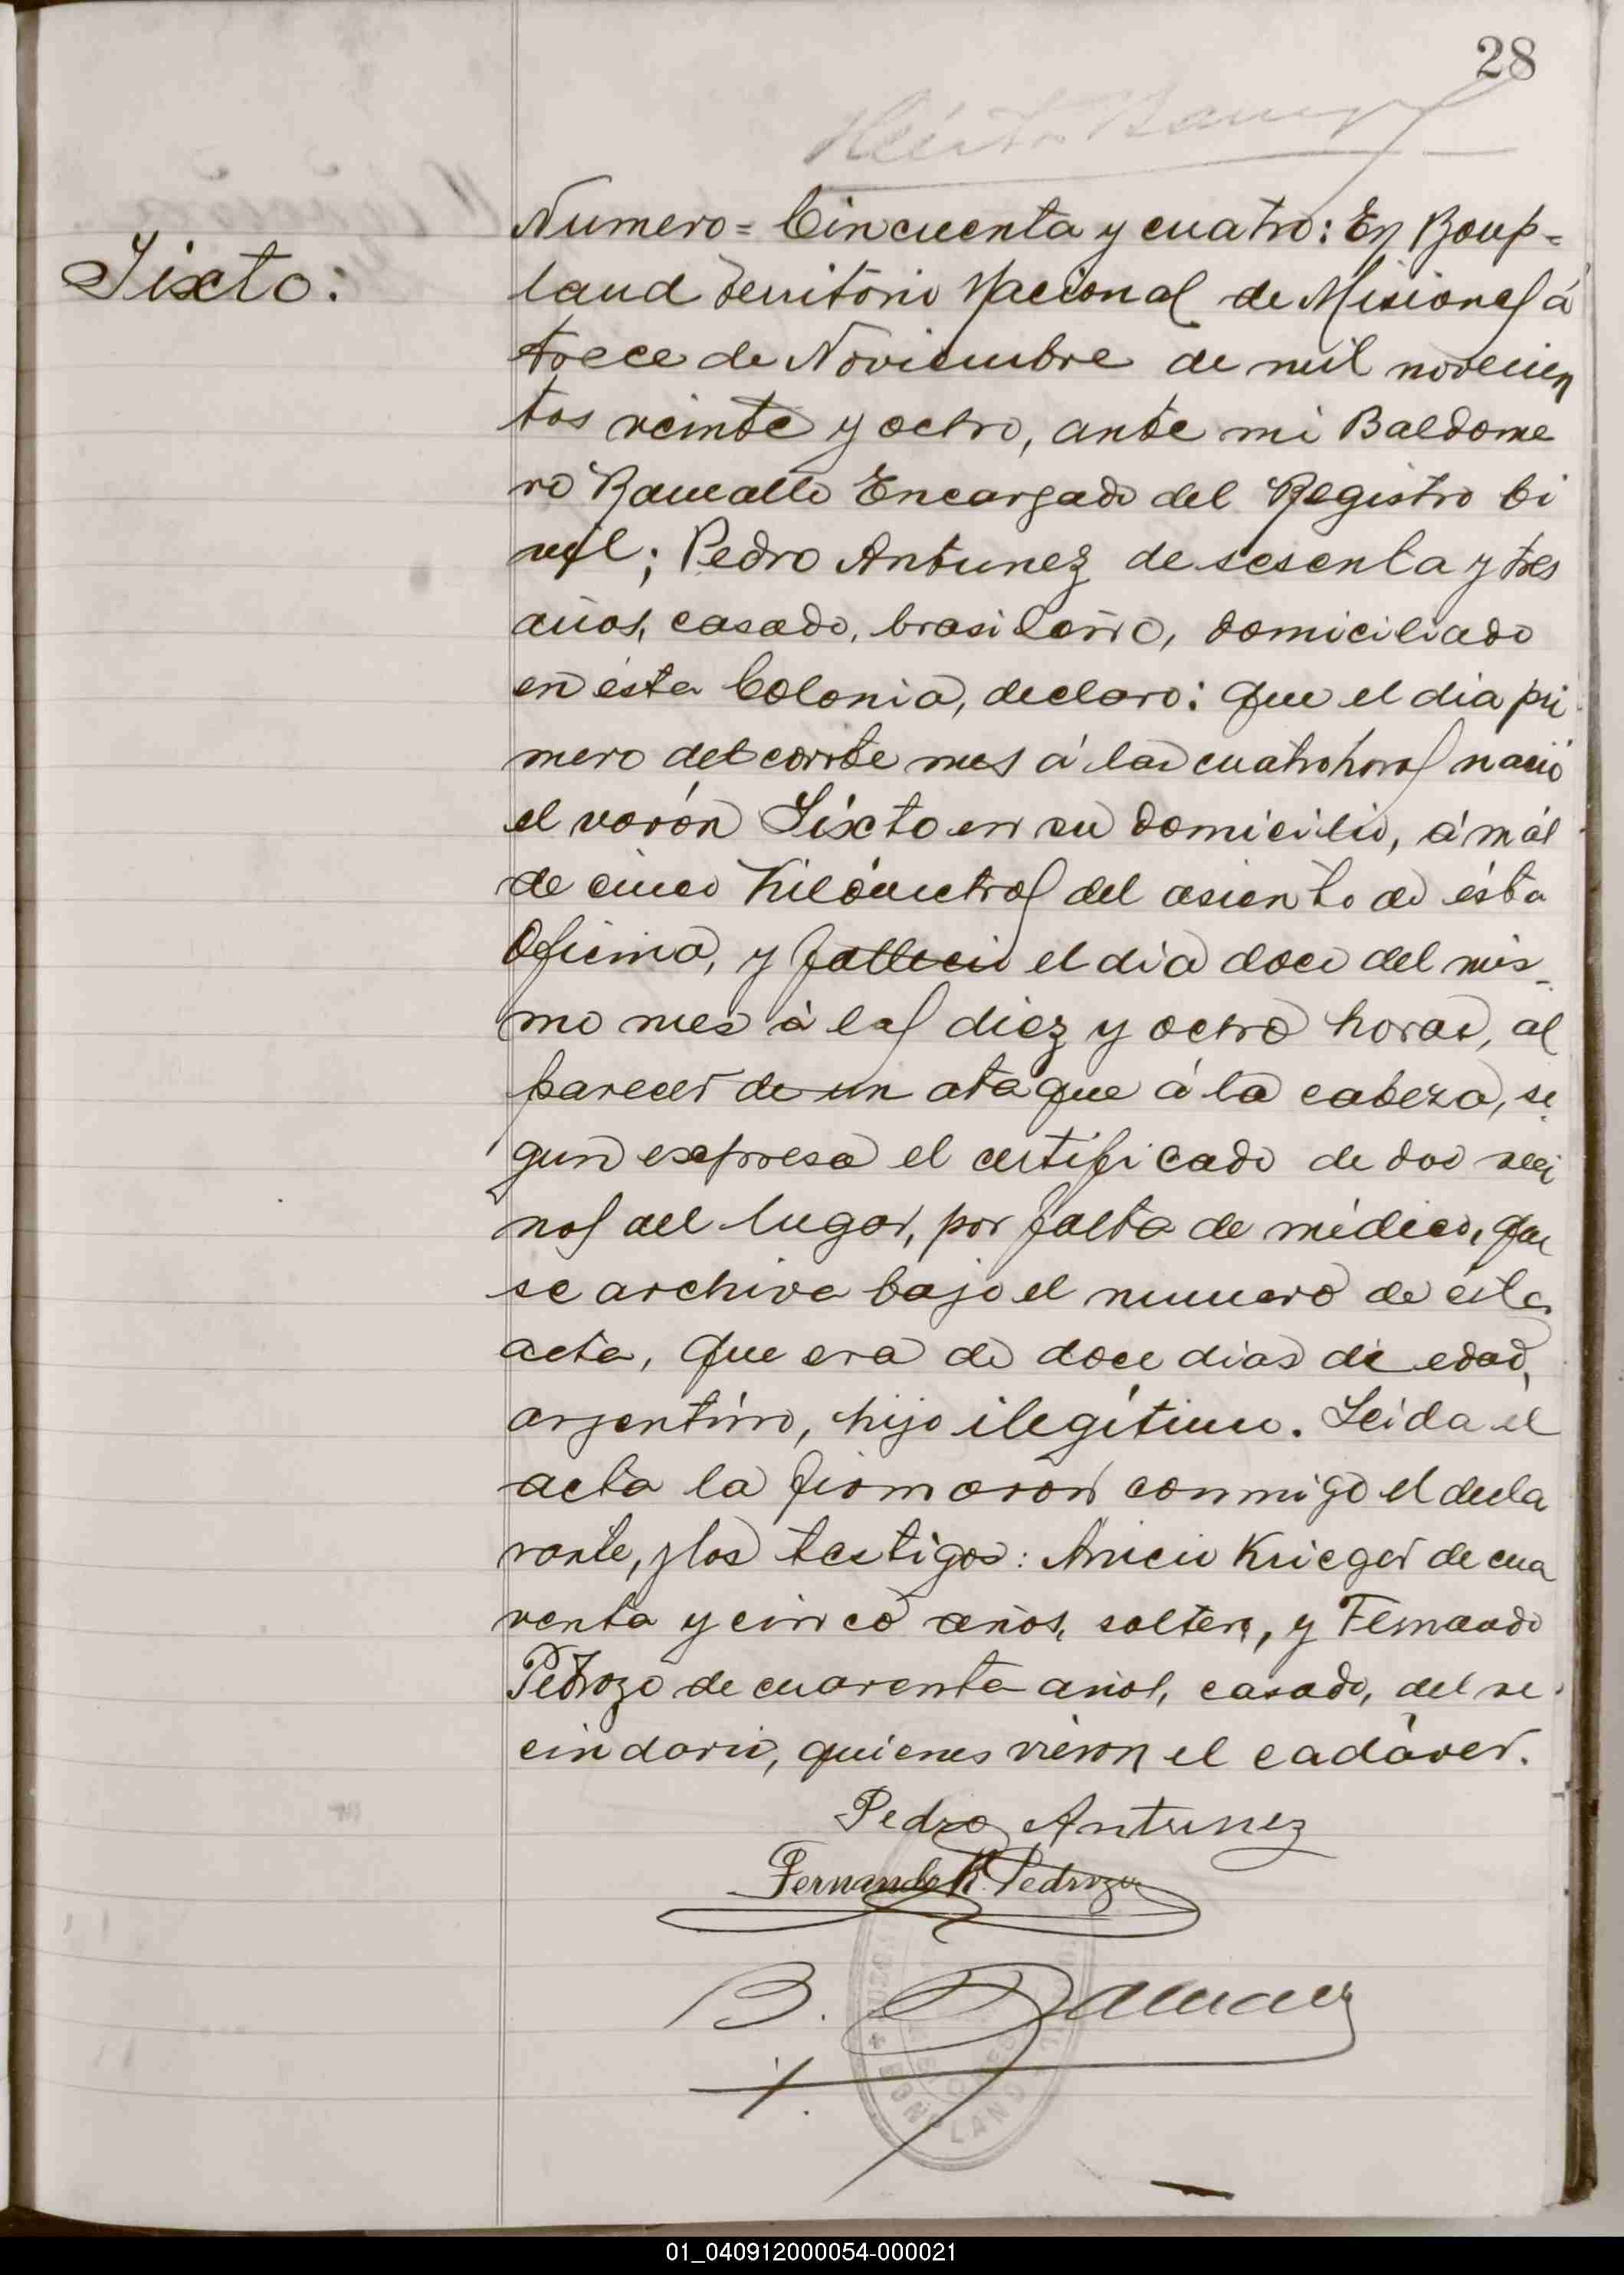 28
Sixto:
Numero = Cincuenta y cuatro: En Bonp=
land Territorio Nacional de Misiones á
trece de Noviembre de mil novecien
tos veinte y ocho, ante mi Baldome
ro Encargado del Registro Ci
vil; Pedro Antunez de sesenta y tres
años, casado, brasilero, domiciliado
en ésta Colonia, declaro: que el dia pri
mero del corrte mes á las cuatro horas nació
el varón Sixto en su domicilio, á más
de cinco Kilómetros del asiento de ésta
Oficina, y falleció el dia doce del mis-
mo mes á las diez y ocho horas, al
parecer de un ataque á la cabeza, se
gun expresa el certificado de dos veci
nos del lugar, por falta de médico, que
se archiva bajo el numero de ésta
acta, que era de doce dias de edad,
argentino, hijo ilegítimo. Leida el
acta la firmaron conmigo el decla
rante, y los testigos: Anicio Krieger de cua
renta y cinco años, soltero, y Fernando
Pedrozo de cuarenta años, casado, del ve
cindario, quienes vieron el cadáver.
Pedro Antunez
Fernando R. Pedrozo
B.
BONPLAND
01_040912000054-000021